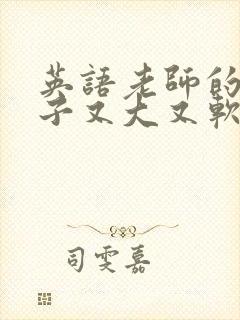 英語老師的
子又大又軟
司雯嘉